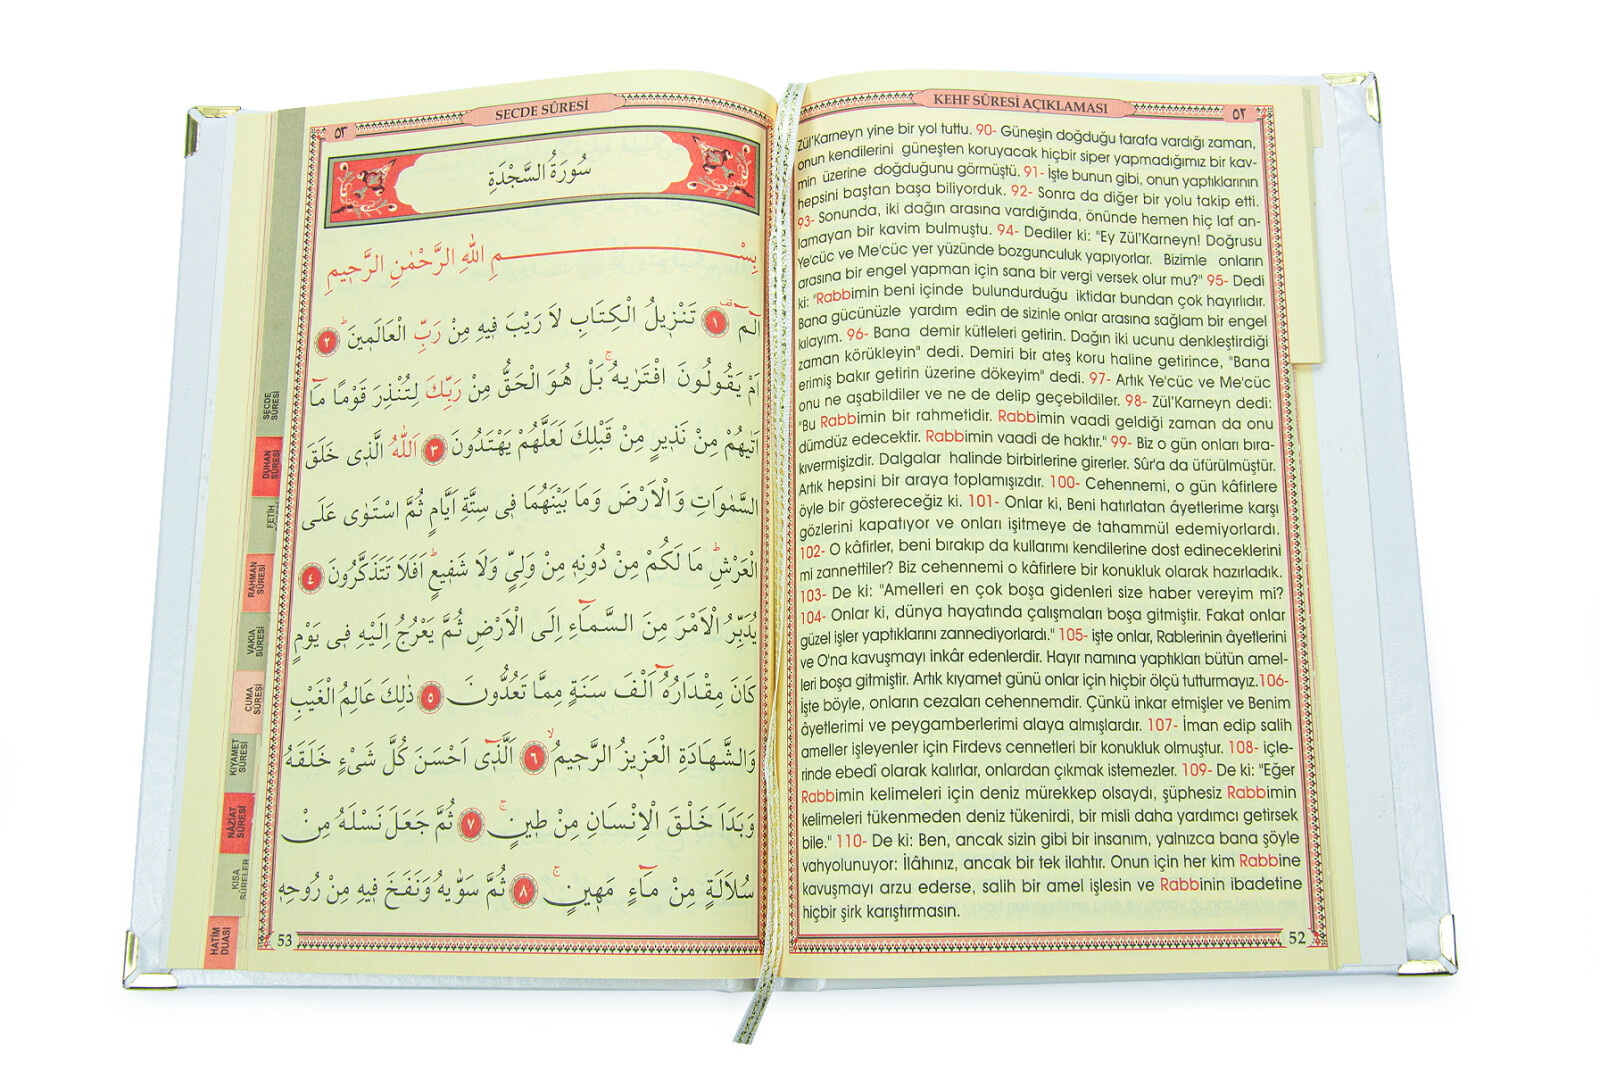 KEHF SÛRESİ AÇIKLAMASI
٥٢
Zül'Karneyn yine bir yol tuttu. 90- Güneşin doğduğu tarafa vardığı zaman,
onun kendilerini güneşten koruyacak hiçbir siper yapmadığımız bir kav-
min üzerine doğduğunu görmüştü. 91- İşte bunun gibi, onun yaptıklarının
hepsini baştan başa biliyorduk. 92- Sonra da diğer bir yolu takip etti.
93- Sonunda, iki dağın arasına vardığında, önünde hemen hiç laf an-
lamayan bir kavim bulmuştu. 94- Dediler ki: "Ey Zül'Karneyn! Doğrusu
Ye'cüc ve Me'cüc yer yüzünde bozgunculuk yapıyorlar. Bizimle onların
arasına bir engel yapman için sana bir vergi versek olur mu?" 95- Dedi
ki: "Rabbimin beni içinde bulundurduğu iktidar bundan çok hayırlıdır.
Bana gücünüzle yardım edin de sizinle onlar arasına sağlam bir engel
kılayım. 96- Bana demir kütleleri getirin. Dağın iki ucunu denkleştirdiği
zaman körükleyin" dedi. Demiri bir ateş koru haline getirince, "Bana
erimiş bakır getirin üzerine dökeyim" dedi. 97- Artık Ye'cüc ve Me'cüc
onu ne aşabildiler ve ne de delip geçebildiler. 98- Zül'Karneyn dedi:
"Bu Rabbimin bir rahmetidir. Rabbimin vaadi geldiği zaman da onu
dümdüz edecektir. Rabbimin vaadi de haktır." 99- Biz o gün onları bıra-
kıvermişizdir. Dalgalar halinde birbirlerine girerler. Sûr'a da üfürülmüştür.
Artık hepsini bir araya toplamışızdır. 100- Cehennemi, o gün kâfirlere
öyle bir göstereceğiz ki. 101- Onlar ki, Beni hatırlatan âyetlerime karşı
gözlerini kapatıyor ve onları işitmeye de tahammül edemiyorlardı.
102- O kâfirler, beni bırakıp da kullarımı kendilerine dost edineceklerini
mi zannettiler? Biz cehennemi o kâfirlere bir konukluk olarak hazırladık.
103- De ki: "Amelleri en çok boşa gidenleri size haber vereyim mi?
104- Onlar ki, dünya hayatında çalışmaları boşa gitmiştir. Fakat onlar
güzel işler yaptıklarını zannediyorlardı." 105- işte onlar, Rablerinin âyetlerini
ve O'na kavuşmayı inkâr edenlerdir. Hayır namına yaptıkları bütün amel-
leri boşa gitmiştir. Artık kıyamet günü onlar için hiçbir ölçü tutturmayız.106-
İşte böyle, onların cezaları cehennemdir. Çünkü inkar etmişler ve Benim
âyetlerimi ve peygamberlerimi alaya almışlardır. 107- İman edip salih
ameller işleyenler için Firdevs cennetleri bir konukluk olmuştur. 108- içle-
rinde ebedî olarak kalırlar, onlardan çıkmak istemezler. 109- De ki: "Eğer
Rabbimin kelimeleri için deniz mürekkep olsaydı, şüphesiz Rabbimin
kelimeleri tükenmeden deniz tükenirdi, bir misli daha yardımcı getirsek
bile." 110- De ki: Ben, ancak sizin gibi bir insanım, yalnızca bana şöyle
vahyolunuyor: İlâhınız, ancak bir tek ilahtır. Onun için her kim Rabbine
kavuşmayı arzu ederse, salih bir amel işlesin ve Rabbinin ibadetine
hiçbir şirk karıştırmasın.
52
٥٣
SECDE SÛRESİ
سُورَةُ السَّجْدَةِ
بِسْمِ اللهِ الرَّحْمٰنِ الرَّحِيمِ
الٓمٓ ١ تَنْزِيلُ الْكِتَابِ لَا رَيْبَ فِيهِ مِنْ رَبِّ الْعَالَمِينَ ٢
اَمْ يَقُولُونَ افْتَرٰيهُ بَلْ هُوَ الْحَقُّ مِنْ رَبِّكَ لِتُنْذِرَ قَوْمًا مَٓا
اَتٰيهُمْ مِنْ نَذِيرٍ مِنْ قَبْلِكَ لَعَلَّهُمْ يَهْتَدُونَ ٣ اَللّٰهُ الَّذِي خَلَقَ
السَّمٰوَاتِ وَالْاَرْضَ وَمَا بَيْنَهُمَا فِي سِتَّةِ اَيَّامٍ ثُمَّ اسْتَوٰى عَلَى
الْعَرْشِ مَا لَكُمْ مِنْ دُونِهِ مِنْ وَلِيٍّ وَلَا شَفِيعٍ اَفَلَا تَتَذَكَّرُونَ ٤
يُدَبِّرُ الْاَمْرَ مِنَ السَّمَٓاءِ اِلَى الْاَرْضِ ثُمَّ يَعْرُجُ اِلَيْهِ فِي يَوْمٍ
كَانَ مِقْدَارُهُٓ اَلْفَ سَنَةٍ مِمَّا تَعُدُّونَ ٥ ذٰلِكَ عَالِمُ الْغَيْبِ
وَالشَّهَادَةِ الْعَزِيزُ الرَّحِيمُ ٦ اَلَّذِٓي اَحْسَنَ كُلَّ شَيْءٍ خَلَقَهُ
وَبَدَاَ خَلْقَ الْاِنْسَانِ مِنْ طِينٍ ٧ ثُمَّ جَعَلَ نَسْلَهُ مِنْ
سُلَالَةٍ مِنْ مَٓاءٍ مَهِينٍ ٨ ثُمَّ سَوّٰيهُ وَنَفَخَ فِيهِ مِنْ رُوحِهِ
53
SECDE
SÛRESİ
DUHAN
SÛRESİ
FETİH
RAHMAN
SÛRESİ
VAKIA
SÛRESİ
CUMA
SÛRESİ
KIYAMET
SÛRESİ
NÂZİAT
SÛRESİ
KISA
SÛRELER
HATİM
DUASI